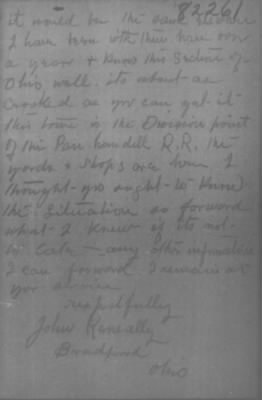 82261
it would be the same
I have been with them here over
a year & know this Section of
Ohio well. its about as
crooked as you can get it
this town is the Division point
of the Pan handell R.R. the
yards & shops are here I
thought you ought to know
the Situation so forward
what I knew if its not
to late — any other information
I can forward I remain at
your service
respectfully
John Keneally
Bradford
Ohio